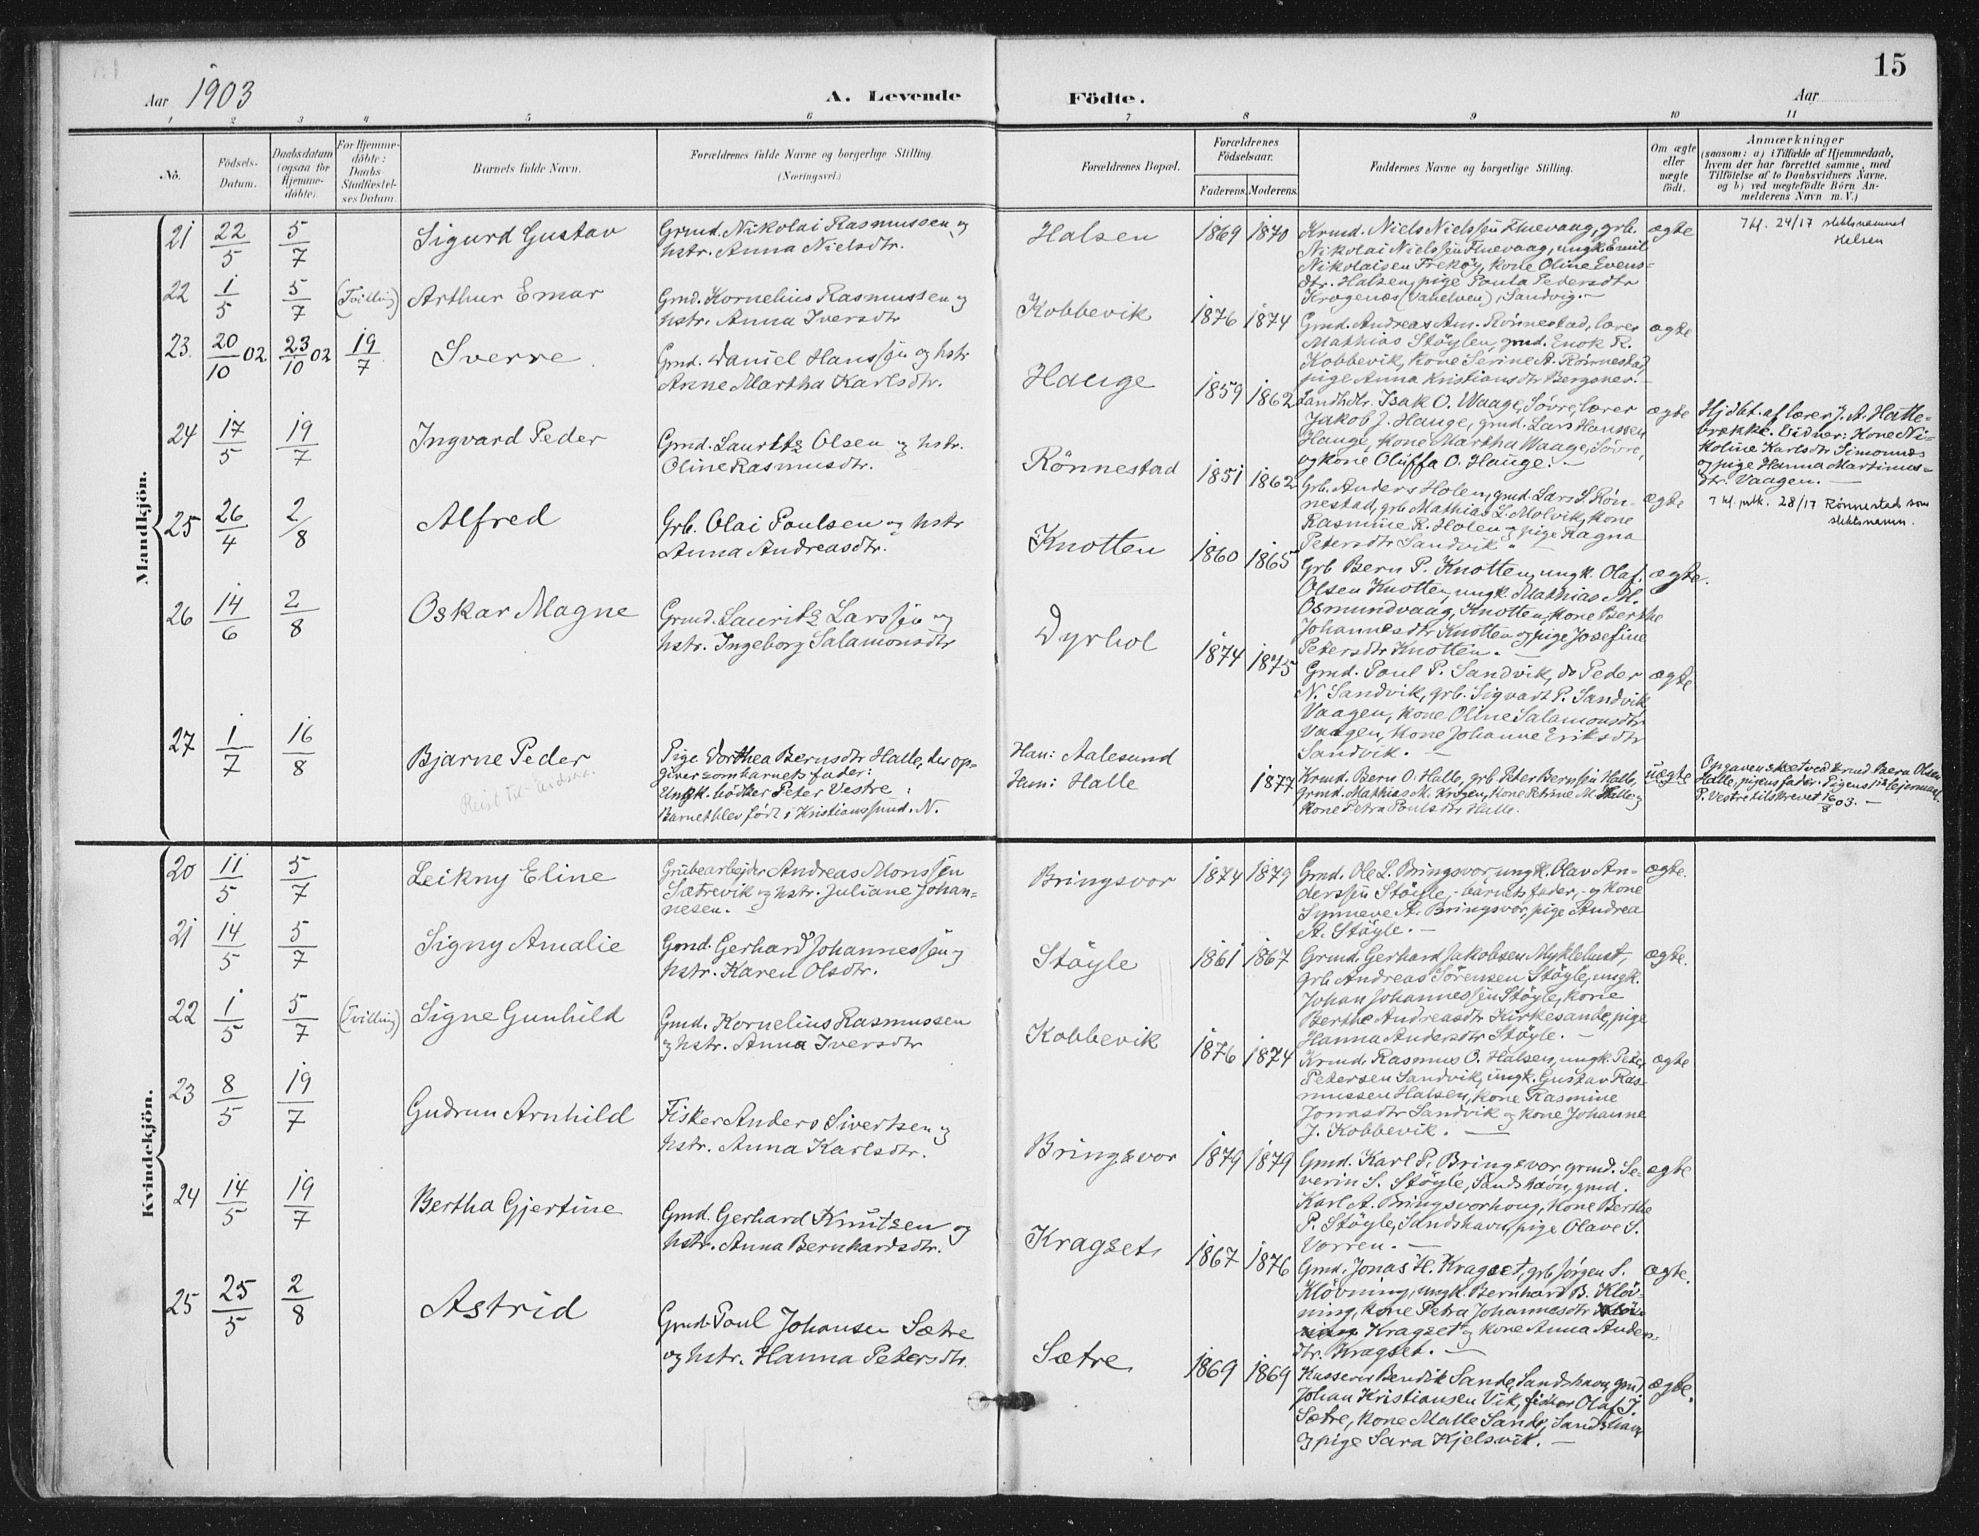 15
Aar 1903
A. Levende
Födte.
Aar
1 2 3 4 5 6 7 8 9 10 11
No.
Födsels-
Datum.
Daabsdatum
(ogsaa for
Hjemme-
döbte).
For Hjemme-
döbte:
Daabs-
Stadfæstel-
ses Datum.
Barnets fulde Navn.
Forældrenes fulde Navne og borgerlige Stilling.
(Næringsvei.)
Forældrenes Bopæl.
Forældrenes
Födselsaar.
Faderens. Moderens.
Faddernes Navne og borgerlige Stilling.
Om ægte
eller
uægte
født.
Anmærkninger
(saasom: a) i Tilfælde af Hjemmedaab,
hvem der har forrettet samme, med
Tilföielse af to Daabsvidners Navne,
og b) ved uægtefödte Börn An-
melderens Navn m. V.)
Mandkjön.
21 22/5 5/7 Sigurd Gustav
Grmd. Nikolai Rasmussen og
hstr. Anna Nielsdtr.
Halsen 1869 1870
Krmd. Niels Nielssøn Fluevaag, grb.
Nikolai Nielssøn Fluevaag, ungk. Emil
Nikolaisen Frekøy, kone Oline Evens-
dtr. Halsen, pige Paula Petersdtr
Krogenæs (Vanelven), Sandvig. –
ægte
7 kl. 24/17 slektsnavnet
Halsen
22 1/5 5/7 (Tvilling) Arthur Emar
Gmd. Kornelius Rasmussen og
hstr. Anna Iversdtr
Kobbevik 1876 1874
Gmd. Andreas Am. Rønnestad, lærer
Mathias Støylen, gmd. Enok R.
Kobbevik, kone Serine A. Rønnestad,
pige Anna Kristiansdtr Bergsnes. –
ægte
23. 20/10 02 23/10 02 19/7 Sverre
Gmd. Daniel Hanssøn og hstr
Anne Martha Karlsdtr.
Hauge 1859 1862
Landhdlr. Isak O. Waage, Søvre, lærer
Jakob J. Hauge, gmd. Lars Hanssen
Hauge, kone Martha Waage, Søvre,
og kone Oluffa O. Hauge. –
ægte
Hjdbt. af lærer J. A. Hatle-
brække. Vidner: Kone Ni-
koline Karlsdtr Simonnæs
og pige Hanna Martinus-
dtr. Vaagen. –
24 17/5 19/7 Ingvard Peder
Gmd. Lauritz Olsen og hstr.
Oline Rasmusdtr.
Rönnestad 1851 1862
Grb. Anders Holen, gmd. Lars L. Røn-
nestad, grb Mathias L. Molvik, kone
Rasmine R. Holen og pige Ragna
Petersdtr Sandvik –
ægte
7 kl. 28/17 Rönnestad som
slektsnavn.
25 26/4 2/8 Alfred
Grb. Olai Poulsen og hstr
Anna Andreasdtr.
Knotten 1860 1865
Grb Bern P. Knotten, ungk. Olaf
Olsen Knotten, ungk. Mathias M.
Osmundvaag, Knotten, kone Berthe
Johannesdtr Knotten og pige Josefine
Petersdtr Knotten. –
ægte.
26 14/6 2/8 Oskar Magne
Grmd. Lauritz Larssøn og
hstr. Ingeborg Salamonsdtr
Dyrhol 1874 1875
Gmd. Poul P. Sandvik, do Peder
N. Sandvik, grb. Sigvart P. Sandvik
Vaagen, kone Oline Salamonsdtr
Vaagen, kone Johanne Eriksdtr
Sandvik. –
ægte
27 1/7 16/8 Bjarne Peder
Pige Dorthea Bernsdtr Halle, der op-
giver som barnets fader:
Ungk. bødker Peter Vestre;
Barnet blev født i Kristianssund. N.
Han: Aalesund
Hun: Halle
1877
Krmd. Bern O. Halle, grb Peter Bernssøn Halle,
Grmd. Mathias M. Krogen, kone Petrine M. Halle og
kone Petra Poulsdtr Halle.
uægte
Opgaven skeet ved Krmd Bern Olsen
Halle, pigens fader.
P. Vestre tilskrevet 16/8 03. –
Kvindekjön.
20 11/5 5/7 Leikny Eline
Grubearbejder Andreas Monssøn
Sætrevik og hstr. Juliane Johan-
nesen. –
Bringsvor 1874 1879
Grmd. Ole L. Bringsvor, ungk. Olav An-
derssøn Støyle, – barnets fader, – og kone
Synneve A. Bringsvor, pige Andrea
A. Støyle. –
ægte.
21 14/5 5/7 Signy Amalie
Gmd. Gerhard Johannessøn og
hstr. Karen Olsdtr.
Støyle 1861 1867
Grmd. Gerhard Jakobsen Myklebust,
grb Andreas Sørensen Støyle, ungk.
Johan Johannessøn Støyle, kone
Berthe Andreasdtr Kirkesande, pige
Hanna Andersdtr Støyle. –
ægte.
22 1/5 5/7 (Tvilling) Signe Gunhild
Gmd. Kornelius Rasmussen
og hstr. Anna Iversdtr
Kobbevik 1876 1874
Krmd. Rasmus O. Halsen, ungk. Peter
Petersen Sandvik, ungk. Gustav Ras-
mussen Halsen, kone Rasmine
Jonasdtr Sandvik og kone Johanne
J. Kobbevik. –
ægte
23 8/5 19/7 Gudrun Arnhild
Fisker Anders Sivertsen og
hstr. Anna Karlsdtr.
Bringsvor 1879 1879
Gmd. Karl P. Bringsvor, grmd. Se-
verin S. Støyle, Sandshavn, gmd.
Karl A. Bringsvorhoug, kone Berthe
P. Støyle, Sandshavn, pige Olave S.
Vorren. –
ægte
24 14/5 19/7 Bertha Gjertine
Gmd. Gerhard Knutsen og
hstr. Anna Bernhardsdtr.
Kragset 1867 1876
Gmd. Jonas H. Kragset, grb. Jørgen S.
Kløvning, ungk. Bernhard B. Kløv-
ning, kone Petra Johannesdtr
Kragset og kone Anna Anders-
dtr. Kragset. –
ægte.
25 25/5 2/8 Astrid
Gmd. Poul Johansen Sætre
og hstr. Hanna Petersdtr.
Sætre 1869 1869
Kasserer Bendik Sande, Sandshavn, gmd
Johan Kristiansen Vik, fisker Olaf J.
Sætre, kone Malle Sande, Sandshavn
og pige Sara Kjelsvik. –
ægte.